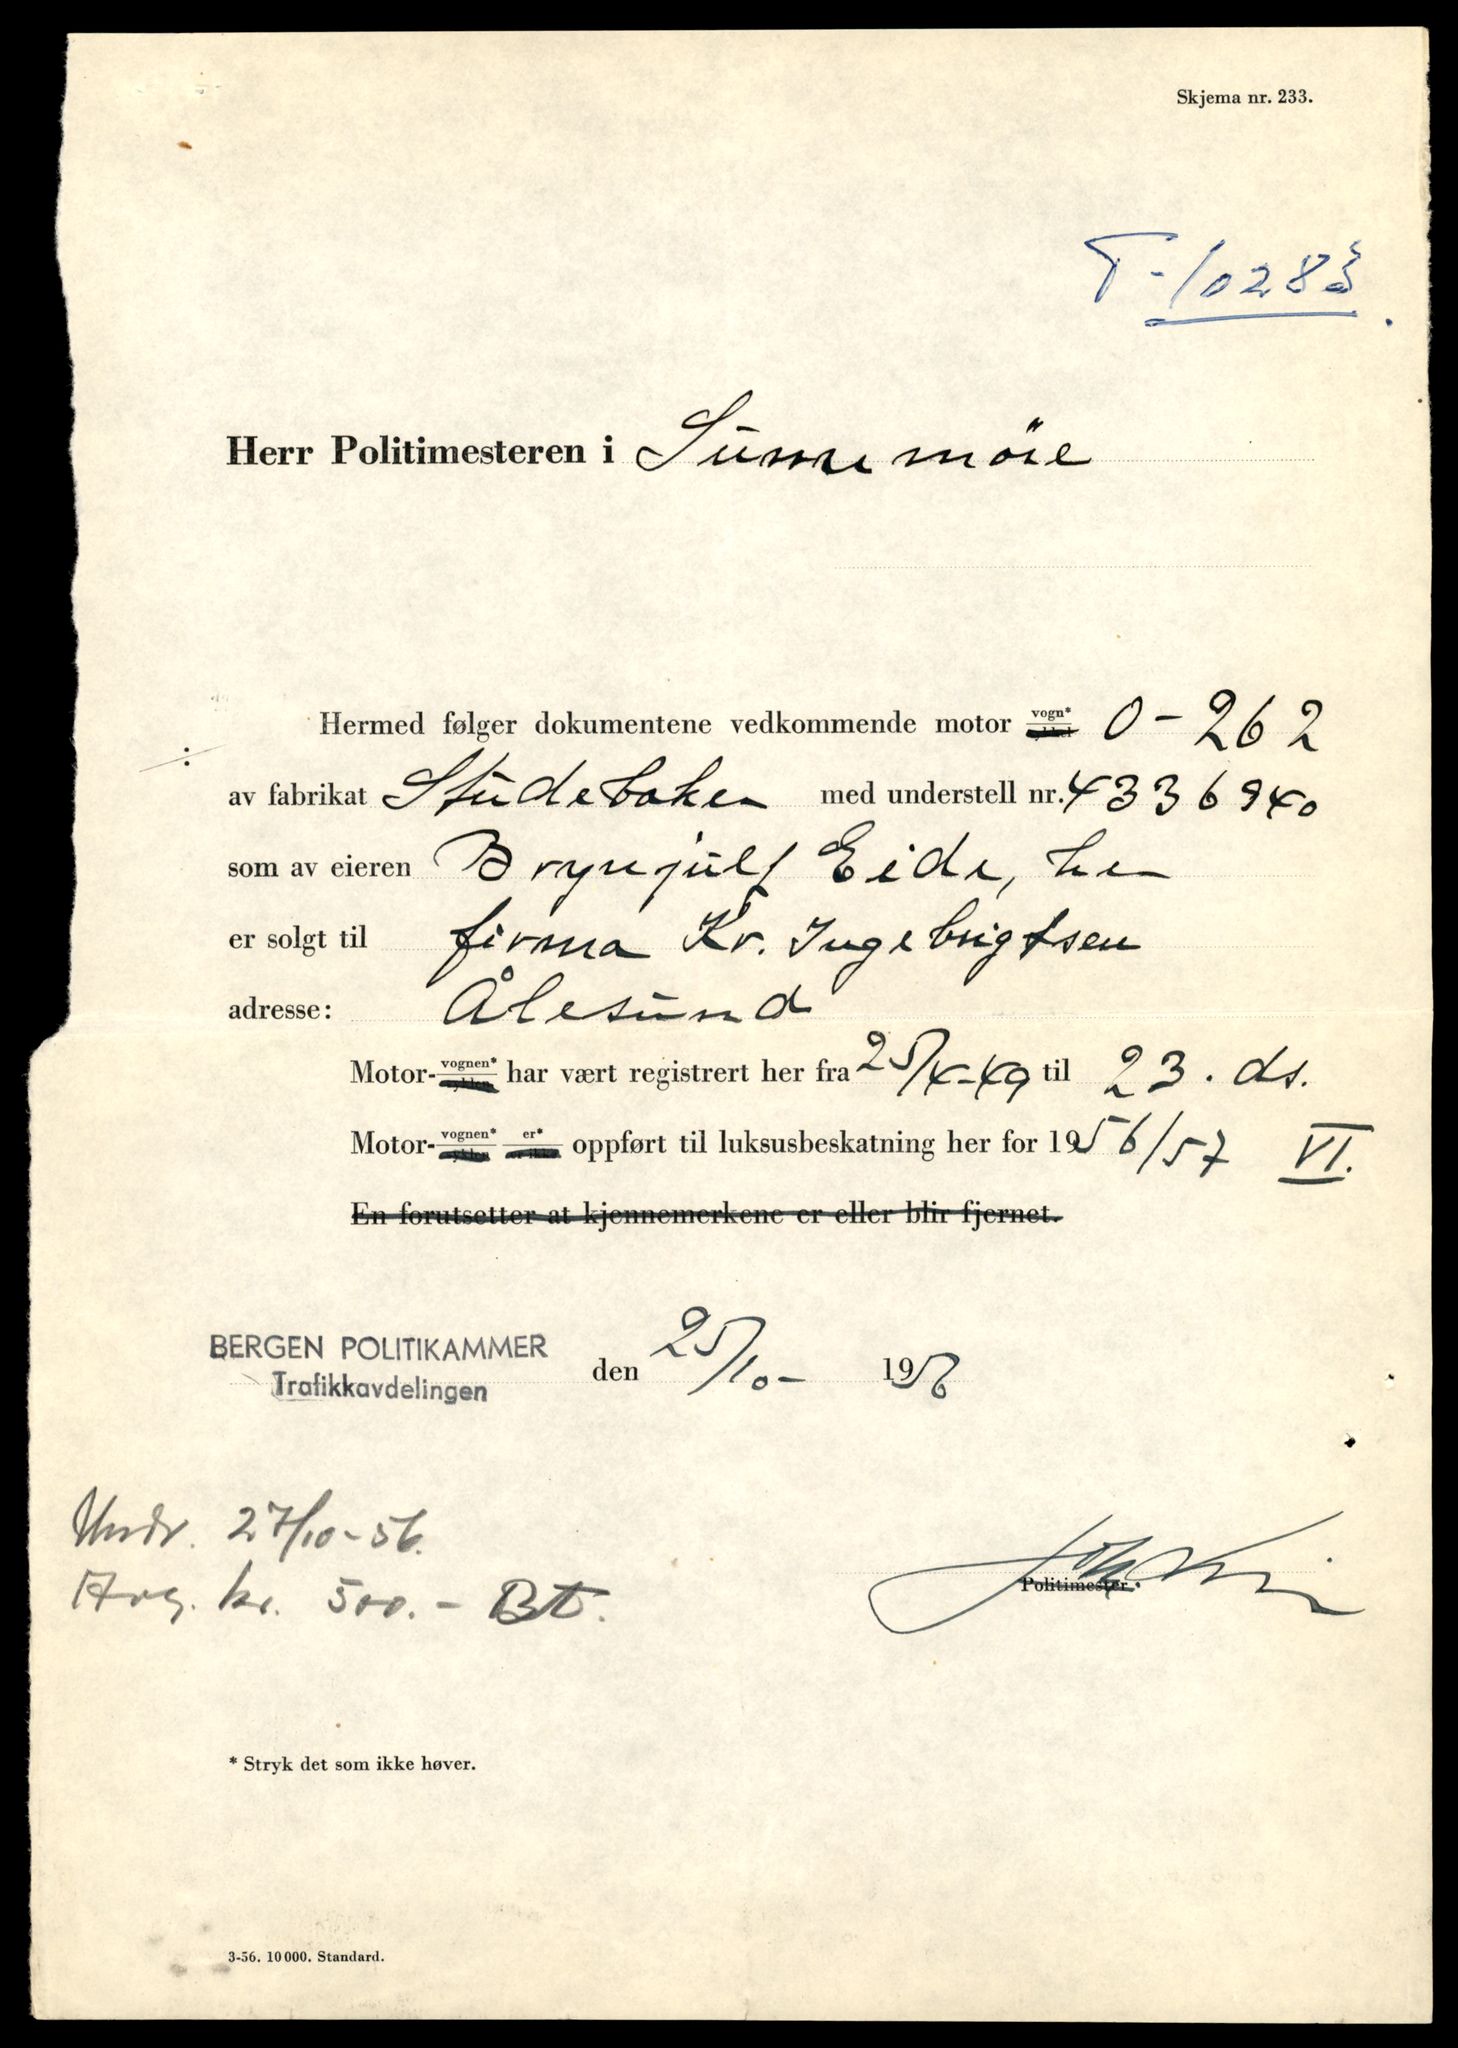 Skjema nr. 233.
T-10283.
Herr Politimesteren i Sunnmøre
Hermed følger dokumentene vedkommende motor vogn* O-262
av fabrikat Studebaker med understell nr. 4336940
som av eieren Brynjulf Eide, her
er solgt til firma Kr. Ingebrigtsen
adresse: Ålesund
Motor-vognen* har vært registrert her fra 25/4-49 til 23. ds.
Motor-vognen* er* oppført til luksusbeskatning her for 1956/57 VI.
En forutsetter at kjennemerkene er eller blir fjernet.
BERGEN POLITIKAMMER
Trafikkavdelingen
den 25/10- 1956
27/10-56.
Avg. kr. 500.- Bt.
Politimester.
* Stryk det som ikke høver.
3-56. 10 000. Standard.